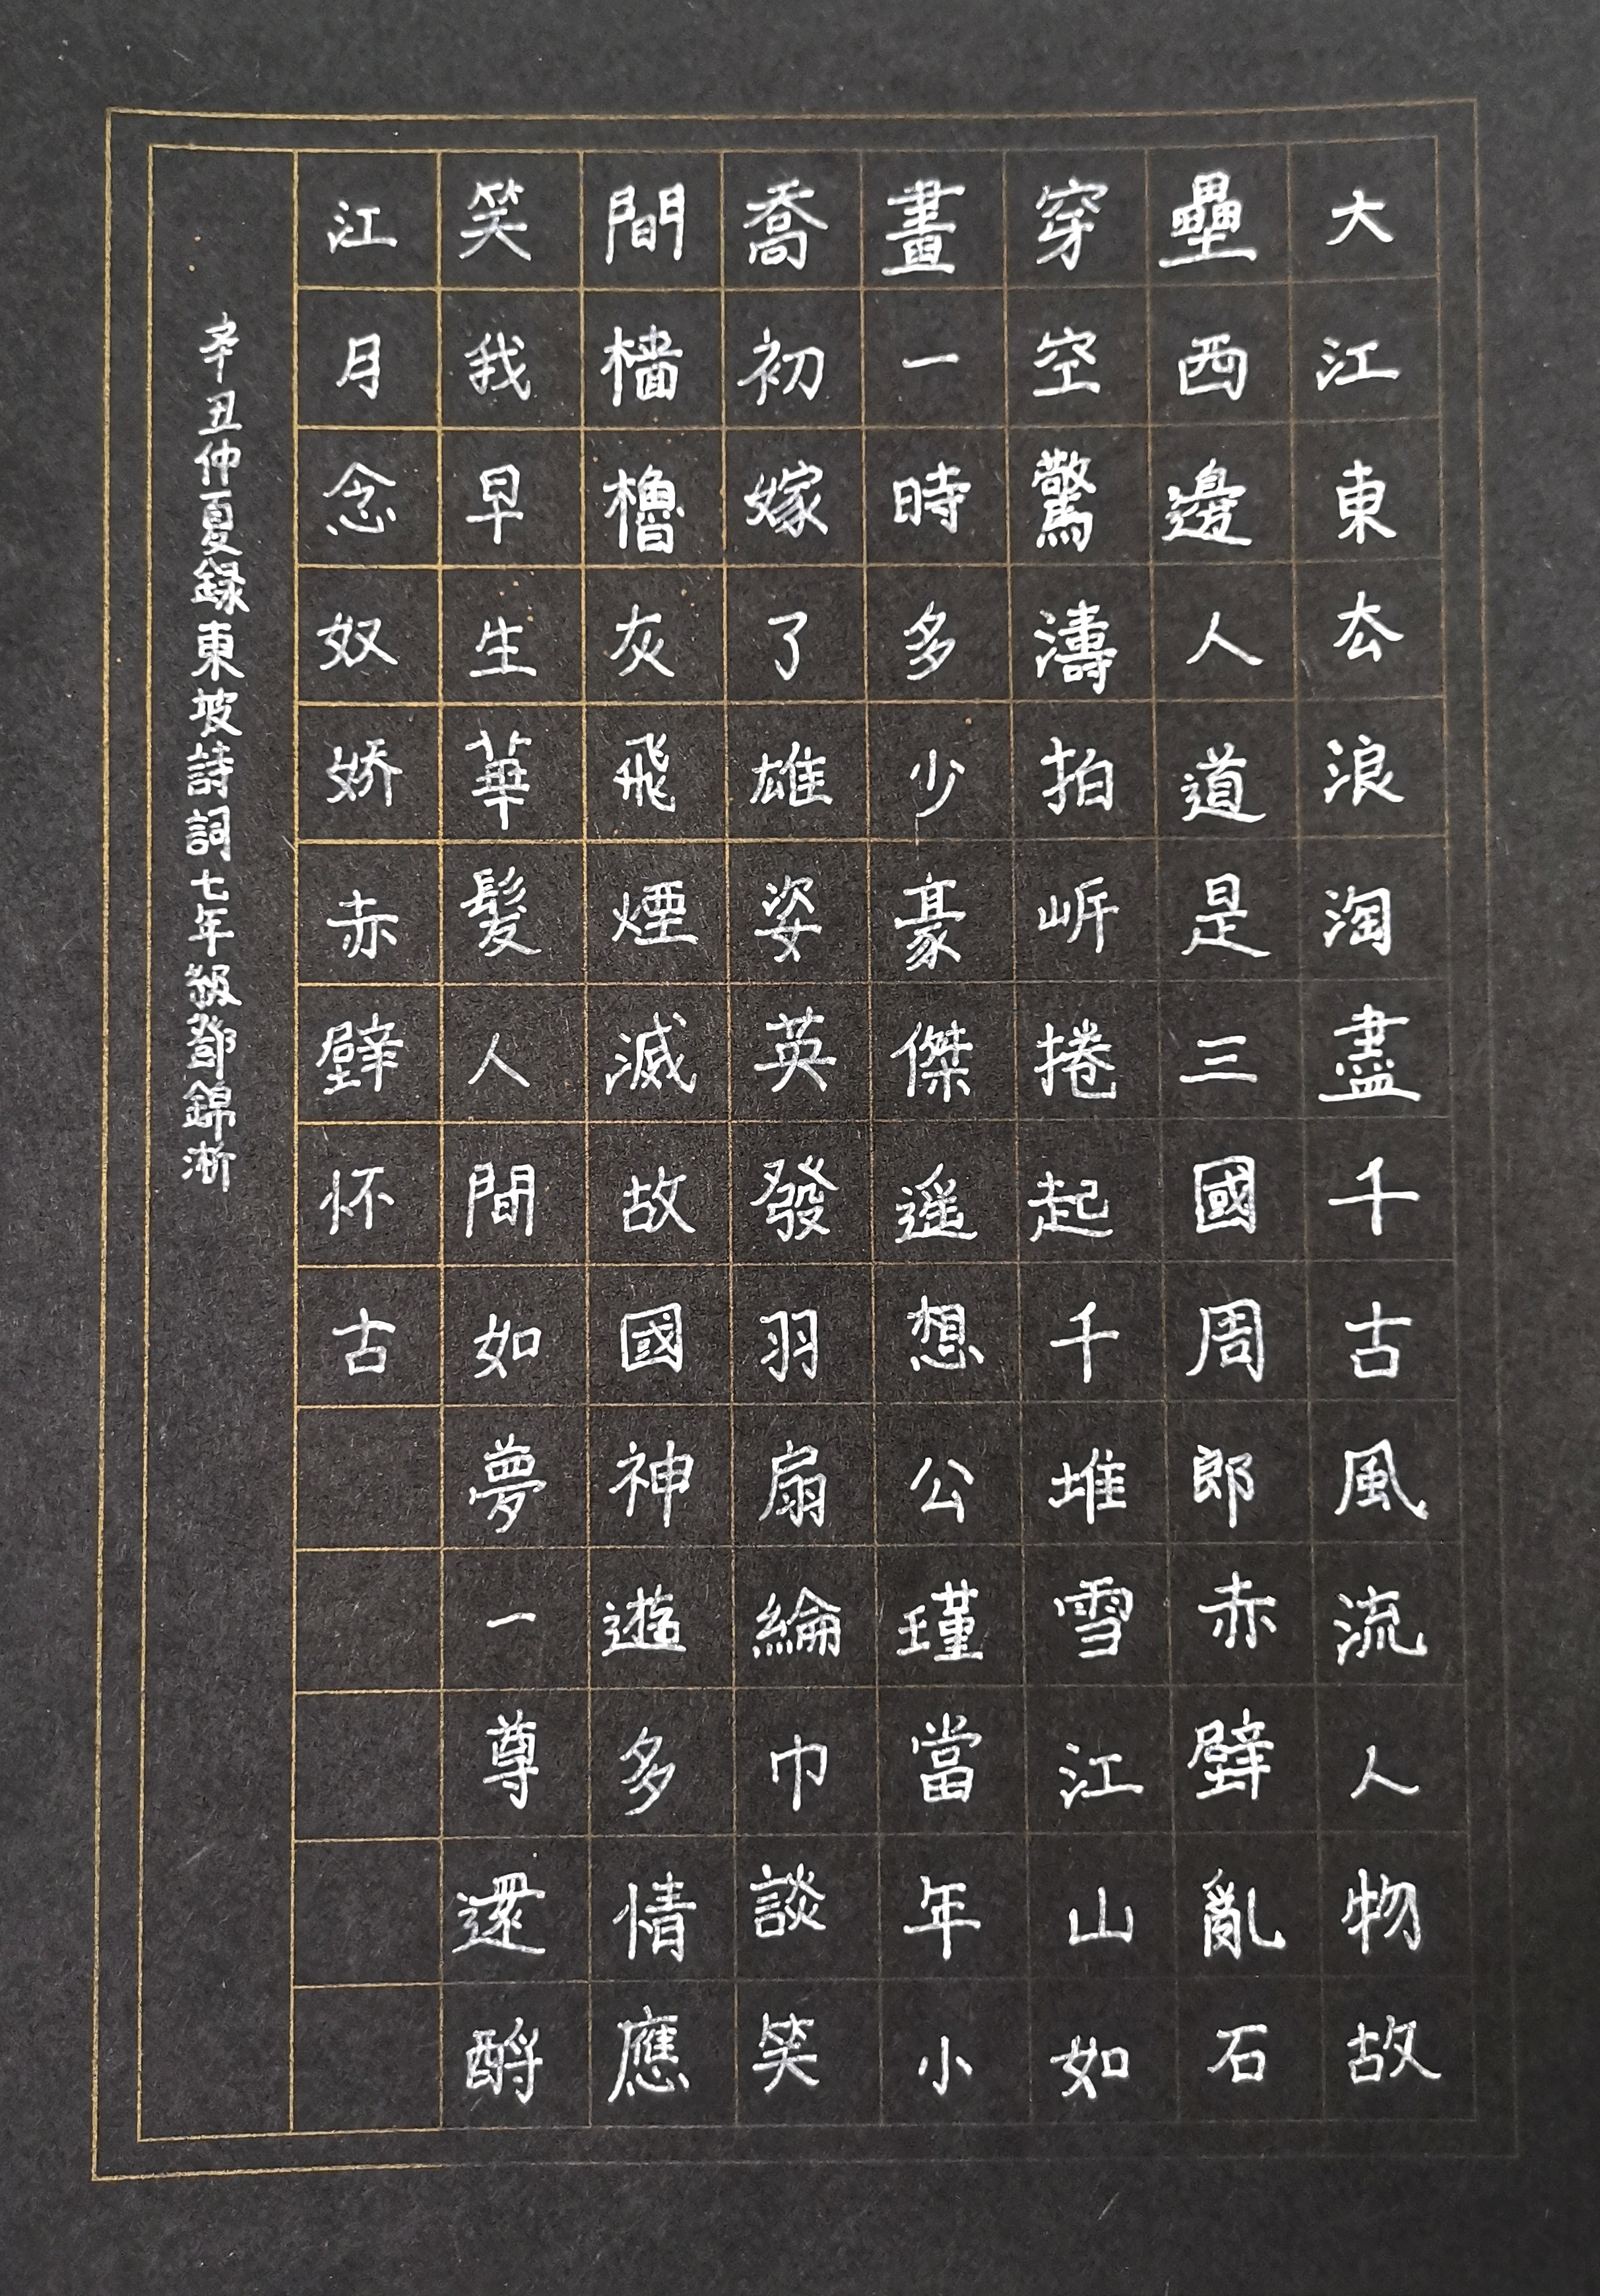 大江東厺浪淘盡千古風流人物故
壘西邊人道是三國周郎赤壁亂石
穿空驚濤拍岸捲起千堆雪江山如
畫一時多少豪傑遥想公瑾當年小
喬初嫁了雄姿英發羽扇綸巾談笑
間檣櫓灰飛煙滅故國神遊多情應
笑我早生華髮人間如夢一尊還酹
江月念奴娇赤壁怀古
辛丑仲夏録東坡詩詞七年級鄧錦淅